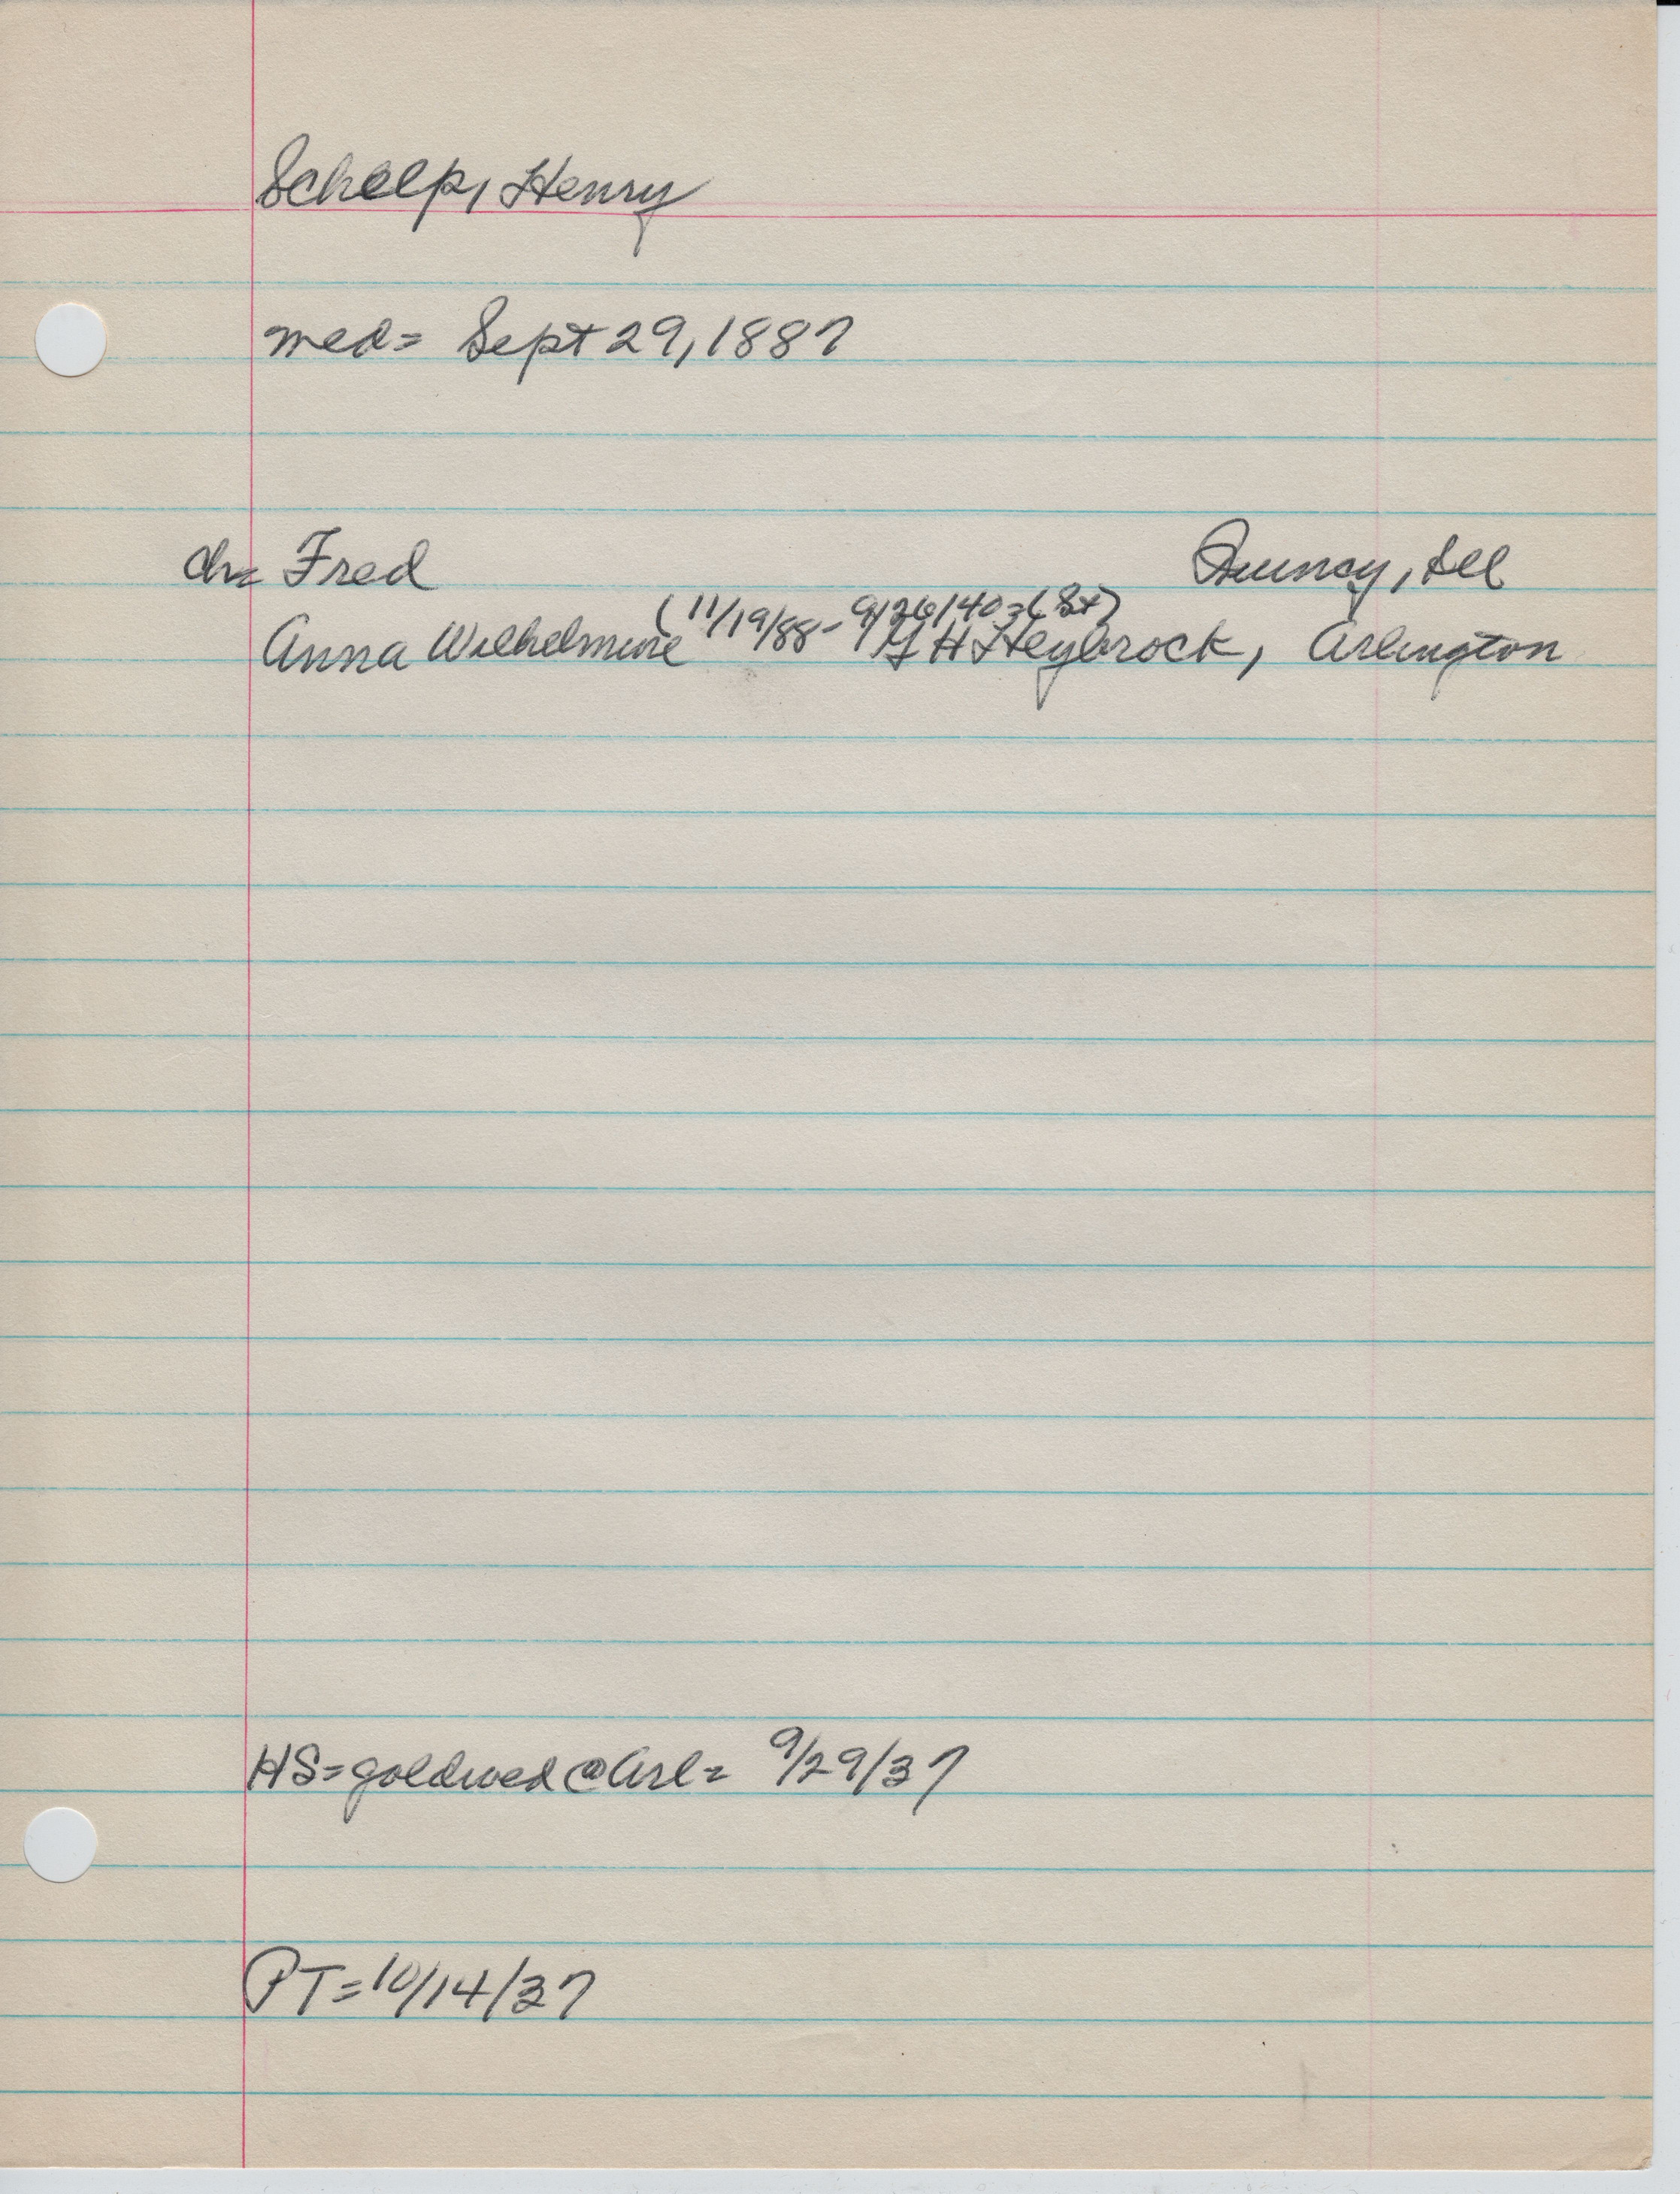 Schelp, Henry
med= Sept 29, 1887
ch= Fred Quincy, Ill
(11/19/88- 9/26/40=(St)
Anna Wilhelmine G H Heybrock, Arlington
HS=goldwed@Arl= 9/29/37
PT=10/14/37